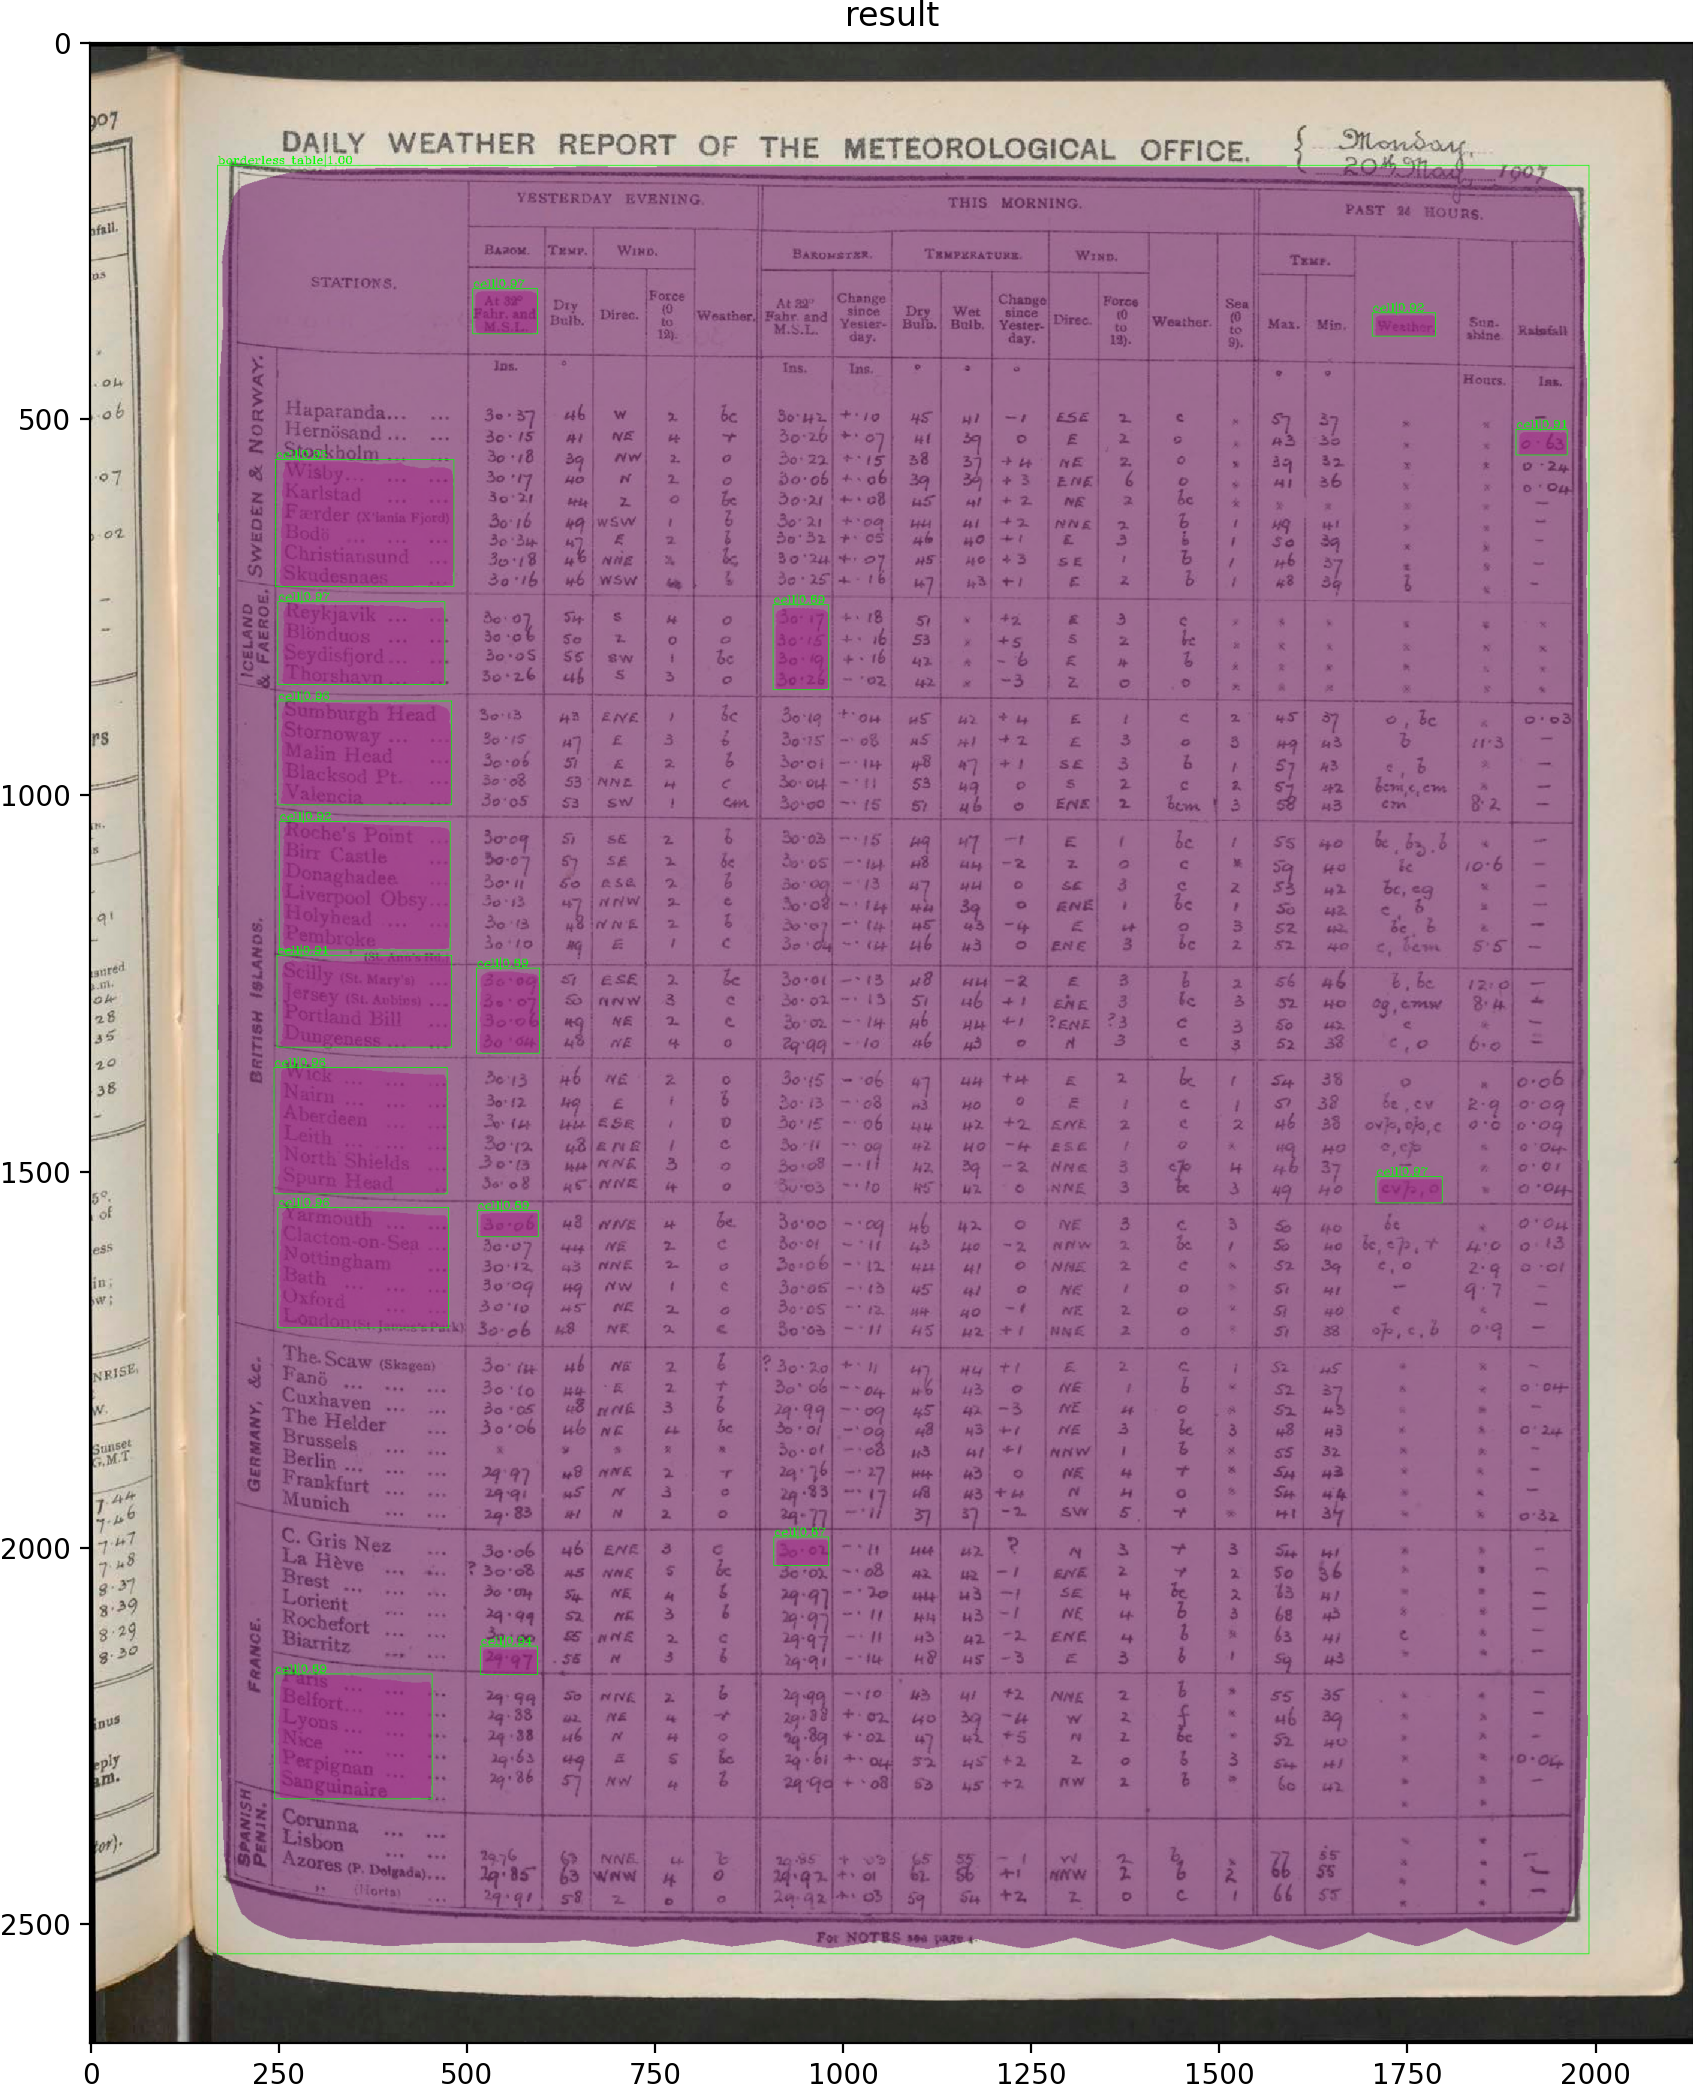 result
DAILY WEATHER REPORT OF THE METEOROLOGICAL OFFICE.
Monday,
20th May, 1907
borderless table|1.00
YESTERDAY EVENING. THIS MORNING. PAST 24 HOURS.
BAROM. TEMP. WIND. BAROMETER. TEMPERATURE. WIND. TEMP.
STATIONS. At 32° Fahr. and M.S.L. Dry Bulb. Direc. Force (0 to 12). Weather. At 32° Fahr. and M.S.L. Change since Yester-day. Dry Bulb. Wet Bulb. Change since Yester-day. Direc. Force (0 to 12). Weather. Sea (0 to 9). Max. Min. Weather. Sun-shine Rainfall
Ins. ° Ins. Ins. ° ° ° ° ° Hours. Ins.
SWEDEN & NORWAY.
Haparanda... ... 30.37 46 W 2 bc 30.42 +.10 45 41 -1 ESE 2 c * 57 37 * * —
Hernösand ... ... 30.15 41 NE 4 r 30.26 +.07 41 39 0 E 2 o * 43 30 * * 0.63
Stockholm ... 30.18 39 NW 2 o 30.22 +.15 38 37 +4 NE 2 o * 39 32 * * 0.24
Wisby... ... ... 30.17 40 N 2 o 30.06 +.06 39 39 +3 ENE 6 o * 41 36 * * 0.04
Karlstad ... ... 30.21 44 Z 0 bc 30.21 +.08 45 41 +2 NE 2 bc * * * * * —
Færder (X'iania Fjord) 30.16 49 WSW 1 b 30.21 +.09 44 41 +2 NNE 2 b 1 49 41 * * —
Bodö ... ... ... 30.34 47 E 2 b 30.32 +.05 46 40 +1 E 3 b 1 50 39 * * —
Christiansund ... 30.18 46 NNE bc 30.24 +.07 45 40 +3 SE 1 b 1 46 37 * * —
Skudesnaes ... 30.16 46 WSW b 30.25 +.16 47 43 +1 E 2 b 1 48 39 b * —
ICELAND & FAEROE.
Reykjavik ... ... 30.07 54 S 4 o 30.17 +.18 51 * +2 E 3 c * * * * * *
Blönduos ... 30.06 50 Z 0 o 30.15 +.16 53 * +5 S 2 bc * * * * * *
Seydisfjord ... ... 30.05 55 SW 1 bc 30.19 +.16 42 * -6 E 4 b * * * * * *
Thorshavn ... ... 30.26 46 S 3 o 30.26 -.02 42 * -3 Z 0 o * * * * * *
BRITISH ISLANDS.
Sumburgh Head 30.13 43 ENE 1 bc 30.19 +.04 45 42 +4 E 1 c 2 45 37 o, bc * 0.03
Stornoway ... ... 30.15 47 E 3 b 30.15 -.08 45 41 +2 E 3 o 3 49 43 b 11.3 —
Malin Head ... 30.06 51 E 2 b 30.01 -.14 48 47 +1 SE 3 b 1 57 43 c, b * —
Blacksod Pt. ... 30.08 53 NNE 4 c 30.04 -.11 53 49 0 S 2 c 2 57 42 bcm,c,cm * —
Valencia ... ... 30.05 53 SW 1 cm 30.00 -.15 51 46 0 ENE 2 bcm 3 58 43 cm 8.2 —
Roche's Point ... 30.09 51 SE 2 b 30.03 -.15 49 47 -1 E 1 bc 1 55 40 bc, bz, b * —
Birr Castle ... 30.07 57 SE 2 bc 30.05 -.14 48 44 -2 Z 0 c * 59 40 bc 10.6 —
Donaghadee ... 30.11 50 ESE 2 b 30.09 -.13 47 44 0 SE 3 c 2 53 42 bc, cg * —
Liverpool Obsy... 30.13 47 NNW 2 c 30.08 -.14 44 39 0 ENE 1 bc 1 50 42 c, b * —
Holyhead ... 30.13 48 NNE 2 b 30.07 -.14 45 43 -4 E 4 o 3 52 42 bc, b * —
Pembroke (St. Ann's Hd.) 30.10 49 E 1 c 30.04 -.14 46 43 0 ENE 3 bc 2 52 40 c, bcm 5.5 —
Scilly (St. Mary's) ... 30.09 51 ESE 2 bc 30.01 -.13 48 44 -2 E 3 b 2 56 46 b, bc 12.0 —
Jersey (St. Aubins) ... 30.07 50 NNW 3 c 30.02 -.13 51 46 +1 ENE 3 bc 3 52 40 og, cmw 8.4
Portland Bill ... 30.06 49 NE 2 c 30.02 -.14 46 44 +1 ?ENE ?3 c 3 50 42 c * —
Dungeness ... ... 30.04 48 NE 4 o 29.99 -.10 46 43 0 N 3 c 3 52 38 c, o 6.0 —
Wick ... ... ... 30.13 46 NE 2 o 30.15 -.06 47 44 +4 E 2 bc 1 54 38 o * 0.06
Nairn ... ... ... 30.12 49 E 1 b 30.13 -.08 43 40 0 E 1 c 1 51 38 bc, cv 2.9 0.09
Aberdeen ... ... 30.14 44 ESE 1 o 30.15 -.06 44 42 +2 ENE 2 c 2 46 38 ov/p, o/p, c 0.0 0.09
Leith ... ... ... 30.12 48 ENE 1 c 30.11 -.09 42 40 -4 ESE 1 o * 49 40 c, c/p * 0.04
North Shields ... 30.13 44 NNE 3 o 30.08 -.11 42 39 -2 NNE 3 c/p 4 46 37 * 0.01
Spurn Head ... 30.08 45 NNE 4 o 30.03 -.10 45 42 0 NNE 3 bc 3 49 40 cv/p, o * 0.04
Yarmouth ... ... 30.06 48 NNE 4 bc 30.00 -.09 46 42 0 NE 3 c 3 50 40 bc * 0.04
Clacton-on-Sea ... 30.07 44 NE 2 c 30.01 -.11 43 40 -2 NNW 2 bc 1 50 40 bc, c/p, r 4.0 0.13
Nottingham ... 30.12 43 NNE 2 o 30.06 -.12 44 41 0 NNE 2 c * 52 39 c, o 2.9 0.01
Bath ... ... ... 30.09 49 NW 1 c 30.05 -.13 45 41 0 NE 1 o * 51 41 — 9.7 —
Oxford ... ... 30.10 45 NE 2 o 30.05 -.12 44 40 -1 NE 2 o * 51 40 c —
London (St. James's Park) 30.06 48 NE 2 c 30.03 -.11 45 42 +1 NNE 2 o * 51 38 o/p, c, b 0.9 —
GERMANY, &c.
The Scaw (Skagen) 30.14 46 NE 2 b ?30.20 +.11 47 44 +1 E 2 c 1 52 45 * * —
Fanö ... ... ... 30.10 44 E 2 r 30.06 -.04 46 43 0 NE 1 b * 52 37 * * 0.04
Cuxhaven ... ... 30.05 48 NNE 3 b 29.99 -.09 45 42 -3 NE 4 o * 52 43 * * —
The Helder ... 30.06 46 NE 4 bc 30.01 -.09 48 43 +1 NE 3 bc 3 48 43 * * 0.24
Brussels ... ... * * * * * 30.01 -.08 43 41 +1 NNW 1 b * 55 32 * * —
Berlin ... ... ... 29.97 48 NNE 2 r 29.76 -.27 44 43 0 NE 4 r * 54 43 * * —
Frankfurt ... ... 29.91 45 N 3 o 29.83 -.17 48 43 +4 N 4 o * 54 44 * * —
Munich ... ... 29.83 41 N 2 o 29.77 -.11 37 37 -2 SW 5 r * 41 34 * * 0.32
FRANCE.
C. Gris Nez ... 30.06 46 ENE 3 c 30.02 -.11 44 42 ? N 3 r 3 54 41 * * —
La Hève ... ... ?30.08 45 NNE 5 bc 30.02 -.08 42 42 -1 ENE 2 r 2 50 36 * * —
Brest ... ... ... 30.04 54 NE 4 b 29.97 -.20 44 43 -1 SE 4 bc 2 63 41 * * —
Lorient ... ... 29.99 52 NE 3 b 29.97 -.11 44 43 -1 NE 4 b 3 68 43 * * —
Rochefort ... 55 NNE 2 c 29.97 -.11 43 42 -2 ENE 4 b * 63 41 c * —
Biarritz ... ... 29.97 55 N 3 b 29.91 -.14 48 45 -3 E 3 b 1 59 43 * * —
Paris ... ... ... 29.99 50 NNE 2 b 29.99 -.10 43 41 +2 NNE 2 b * 55 35 * * —
Belfort... ... ... 29.88 42 NE 4 r 29.88 +.02 40 39 -4 W 2 f * 46 39 * * —
Lyons ... ... ... 29.88 46 N 4 o 29.89 +.02 47 42 +5 N 2 bc * 52 40 * * —
Nice ... ... ... 29.63 49 E 5 bc 29.61 +.04 52 45 +2 Z 0 b 3 54 41 * * 0.04
Perpignan ... ... 29.86 57 NW 4 b 29.90 +.08 53 45 +2 NW 2 b * 60 42 * * —
Sanguinaire ... * *
SPANISH PENIN.
Corunna ... ... * *
Lisbon ... ... 29.76 63 NNE 4 b 29.85 +.03 65 55 -1 W 2 b 77 55 * * —
Azores (P. Delgada)... 29.85 63 WNW 4 o 29.92 +.01 62 56 +1 NNW 2 b 2 66 55 * * —
" (Horta) ... 29.91 58 Z 0 o 29.92 +.03 59 54 +2 Z 0 c 1 66 55 * * —
For NOTES see page 4
0
500
1000
1500
2000
2500
0 250 500 750 1000 1250 1500 1750 2000